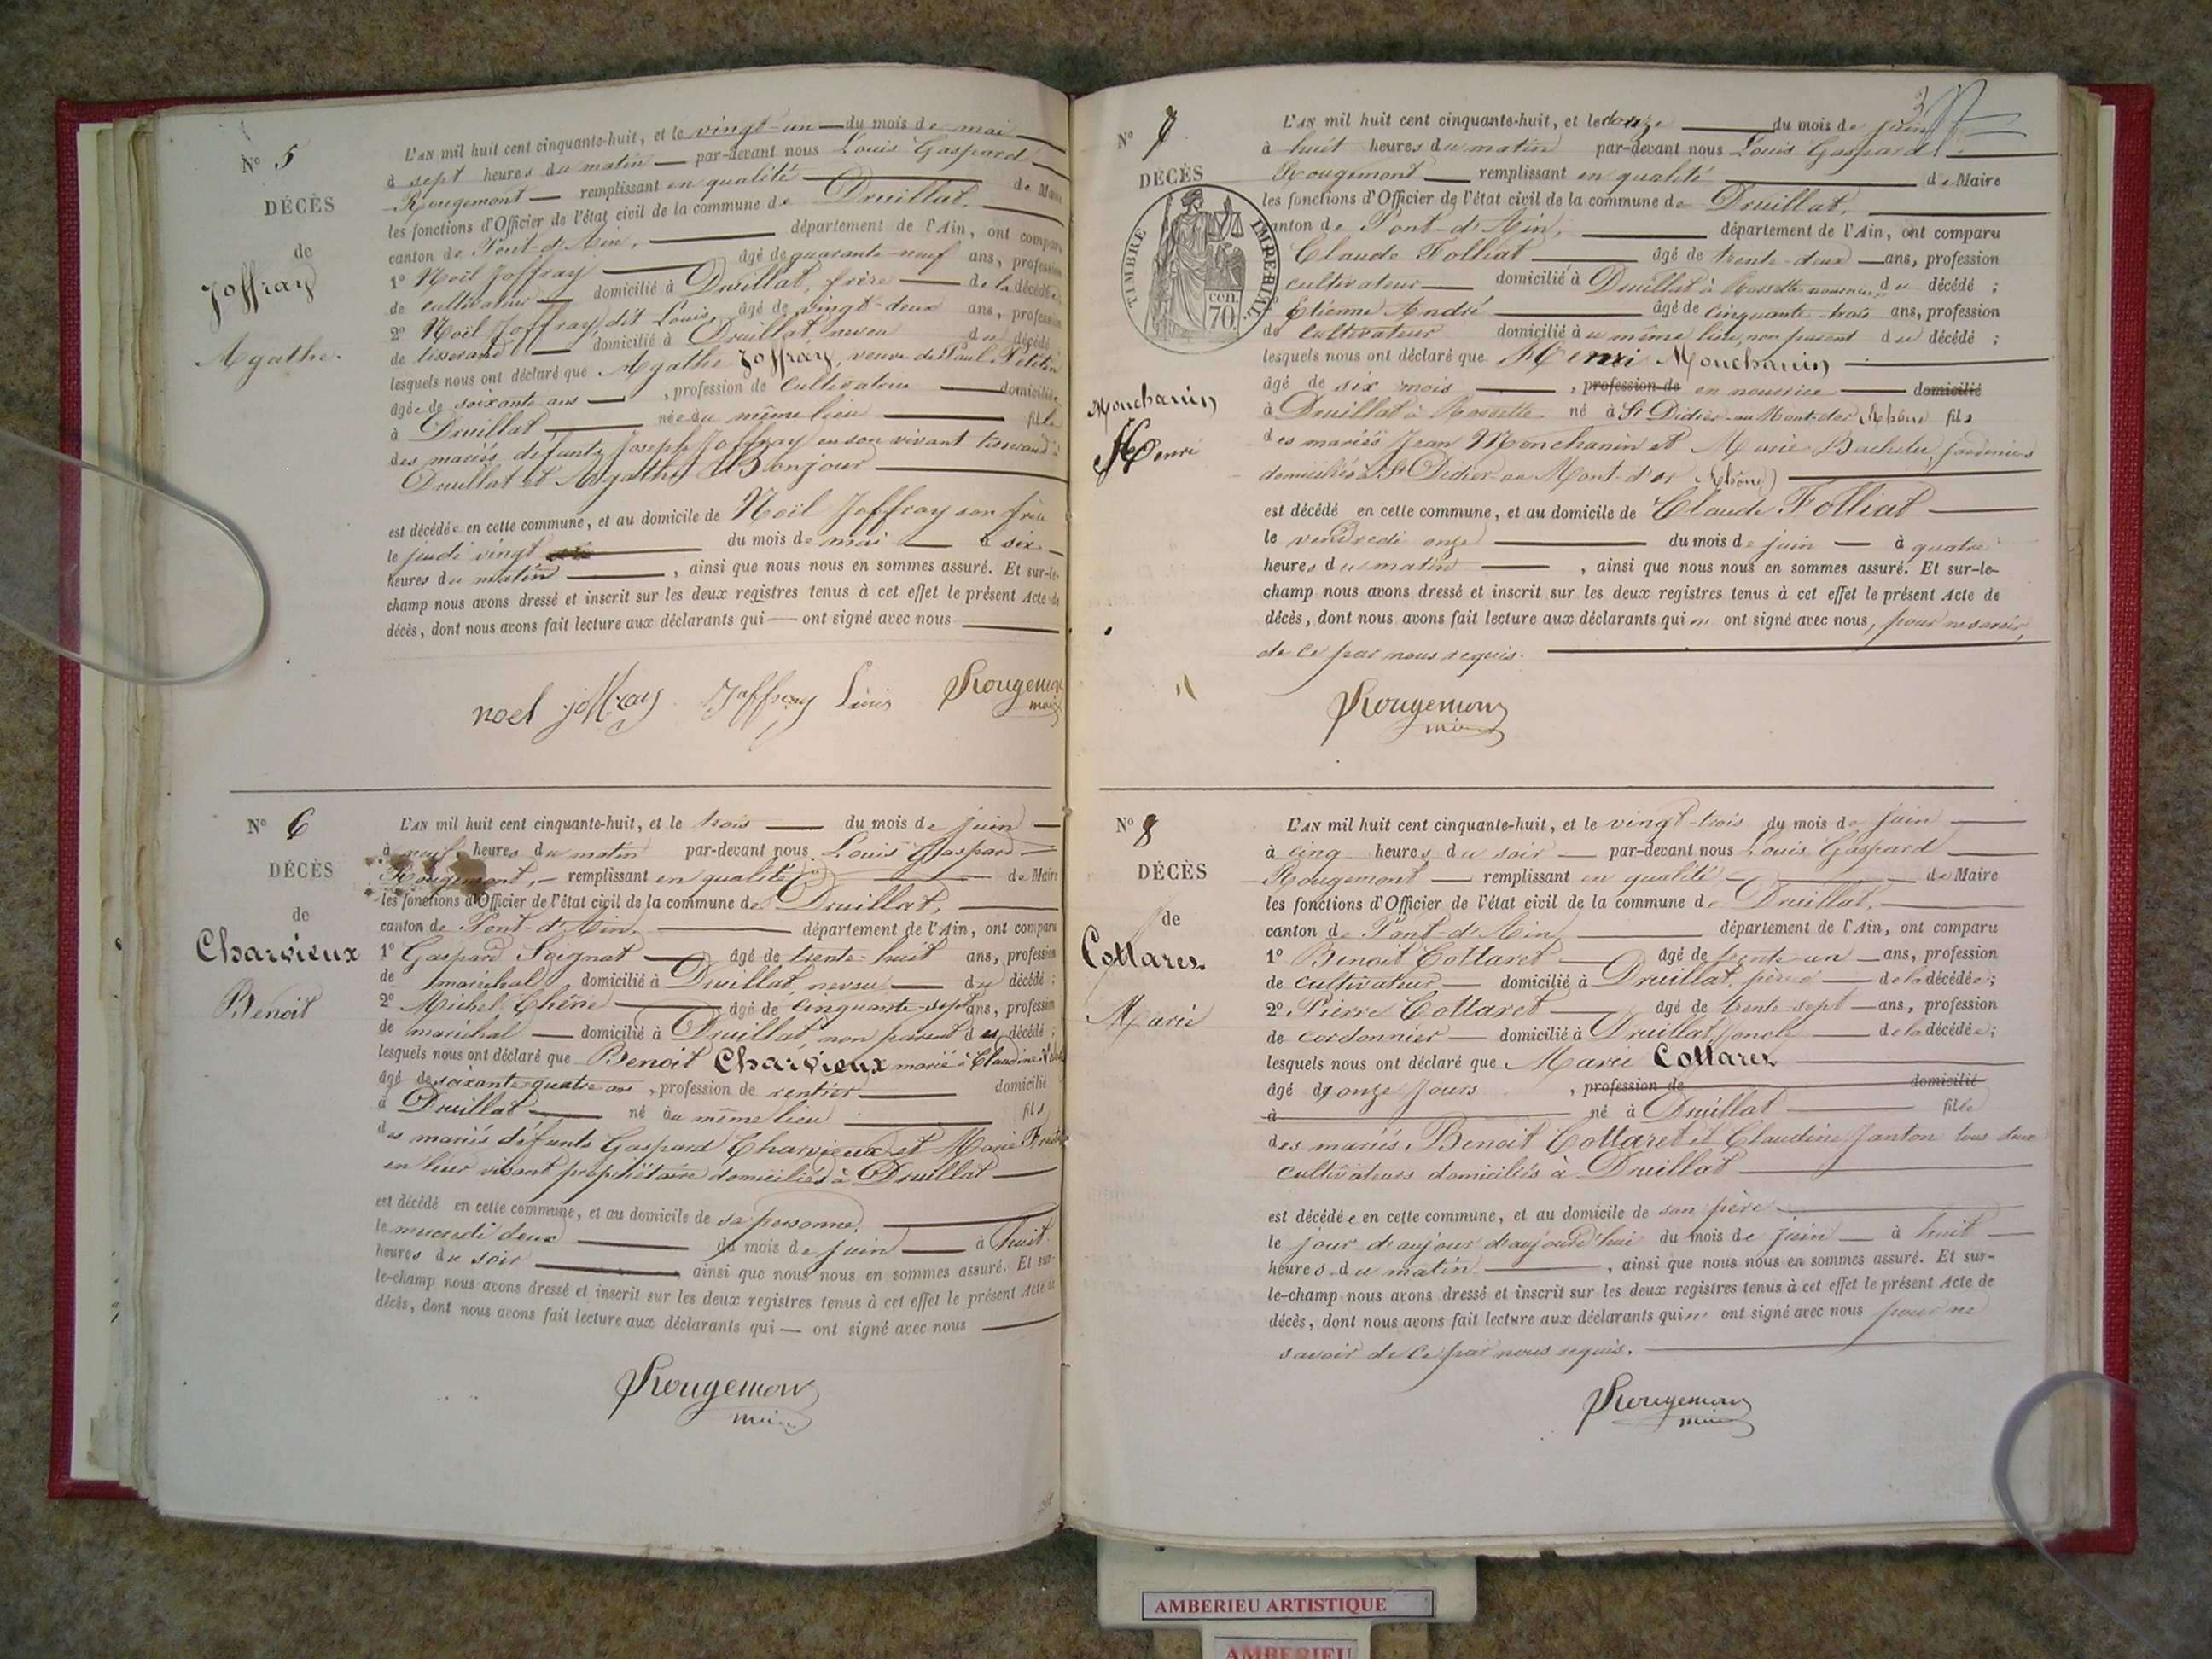 N° 5
DÉCÈS
de
Joffray
Agathe.
L'AN mil huit cent cinquante-huit, et le vingt-un du mois de mai
à sept heures du matin par-devant nous Louis Gaspard
Rougemont remplissant en qualité de Maire
les fonctions d'Officier de l'état civil de la commune de Druillat,
canton de Pont-d'Ain, département de l'Ain, ont comparu
1° Noël Joffray âgé de quarante-neuf ans, profession
de cultivateur domicilié à Druillat, frère de la décédée
2° Noël Joffray, dit Louis, âgé de vingt-deux ans, profession
de tisserand domicilié à Druillat, neveu du décédé
lesquels nous ont déclaré que Agathe Joffray, veuve de Paul Petitin
âgée de soixante ans, profession de cultivateur domiciliée
à Druillat, née au même lieu fille
des mariés défunts Joseph Joffray en son vivant tisserand à
Druillat et Agathe Bonjour
est décédée en cette commune, et au domicile de Noël Joffray son frère
le jeudi vingt du mois de mai à six
heures du matin, ainsi que nous nous en sommes assuré. Et sur-le-
champ nous avons dressé et inscrit sur les deux registres tenus à cet effet le présent Acte de
décès, dont nous avons fait lecture aux déclarants qui ont signé avec nous
noel joffray Joffray Louis Rougemont
maire
N° 6
DÉCÈS
de
Charvieux
Benoit
L'AN mil huit cent cinquante-huit, et le trois du mois de juin
à neuf heures du matin par-devant nous Louis Gaspard
Rougemont, remplissant en qualité de Maire
les fonctions d'Officier de l'état civil de la commune de Druillat,
canton de Pont-d'Ain, département de l'Ain, ont comparu
1° Gaspard Soignat âgé de trente-huit ans, profession
de maréchal domicilié à Druillat, neveu du décédé ;
2° Michel Chêne âgé de cinquante-sept ans, profession
de maréchal domicilié à Druillat, non parent du décédé ;
lesquels nous ont déclaré que Benoit Charvieux marié à Claudine
âgé de soixante-quatre ans, profession de rentier domicilié
à Druillat né au même lieu fils
des mariés défunts Gaspard Charvieux et Marie
en leur vivant propriétaire domiciliés à Druillat
est décédé en cette commune, et au domicile de sa personne.
le mercredi deux du mois de juin à huit
heures du soir ainsi que nous nous en sommes assuré. Et sur-
le-champ nous avons dressé et inscrit sur les deux registres tenus à cet effet le présent Acte de
décès, dont nous avons fait lecture aux déclarants qui ont signé avec nous
Rougemont
maire
3
N° 7
DÉCÈS
TIMBRE IMPERIAL
70 cen.
Monchanin
Henri
L'AN mil huit cent cinquante-huit, et le douze du mois de juin
à huit heures du matin par-devant nous Louis Gaspard
Rougemont remplissant en qualité de Maire
les fonctions d'Officier de l'état civil de la commune de Druillat,
canton de Pont-d'Ain, département de l'Ain, ont comparu
Claude Folliat âgé de trente-deux ans, profession
cultivateur domicilié à Druillat à Rossette nourricier du décédé ;
Etienne André âgé de cinquante-trois ans, profession
de cultivateur domicilié au même lieu, non parent du décédé ;
lesquels nous ont déclaré que Henri Monchanin
âgé de six mois, profession de en nourrice domicilié
à Druillat à Rossette né à St Didier-au-Mont-d'or Rhône fils
des mariés Jean Monchanin et Marie Bachelu, jardiniers
domiciliés à St Didier-au-Mont-d'or (Rhône)
est décédé en cette commune, et au domicile de Claude Folliat
le vendredi onze du mois de juin à quatre
heures du matin, ainsi que nous nous en sommes assuré. Et sur-le-
champ nous avons dressé et inscrit sur les deux registres tenus à cet effet le présent Acte de
décès, dont nous avons fait lecture aux déclarants qui n' ont signé avec nous, pour ne savoir,
de ce par nous requis.
Rougemont
maire
N° 8
DÉCÈS
de
Collaret
Marie
L'AN mil huit cent cinquante-huit, et le vingt-trois du mois de juin
à cinq heures du soir par-devant nous Louis Gaspard
Rougemont remplissant en qualité de Maire
les fonctions d'Officier de l'état civil de la commune de Druillat,
canton de Pont-d'Ain département de l'Ain, ont comparu
1° Benoit Collaret âgé de trente-un ans, profession
de cultivateur domicilié à Druillat, père de la décédée ;
2° Pierre Collaret âgé de trente-sept ans, profession
de cordonnier domicilié à Druillat, oncle de la décédée ;
lesquels nous ont déclaré que Marie Collaret
âgé de onze jours, profession de domicilié
à né à Druillat fille
des mariés, Benoit Collaret et Claudine Janton tous deux
cultivateurs domiciliés à Druillat
est décédée en cette commune, et au domicile de son père
le jour d'aujour d'aujourd'hui du mois de juin à huit
heures du matin, ainsi que nous nous en sommes assuré. Et sur-
le-champ nous avons dressé et inscrit sur les deux registres tenus à cet effet le présent Acte de
décès, dont nous avons fait lecture aux déclarants qui n' ont signé avec nous pour ne
savoir de ce par nous requis.
Rougemont
maire
AMBERIEU ARTISTIQUE
AMBERIEU